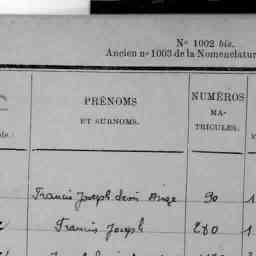 N° 1002 bis.
Ancien n° 1003 de la Nomenclatur
PRÉNOMS
ET SURNOMS.
NUMÉROS
MA-
TRICULES.
Francis Joseph Léon Ange 90 1
Francis Joseph 280 1